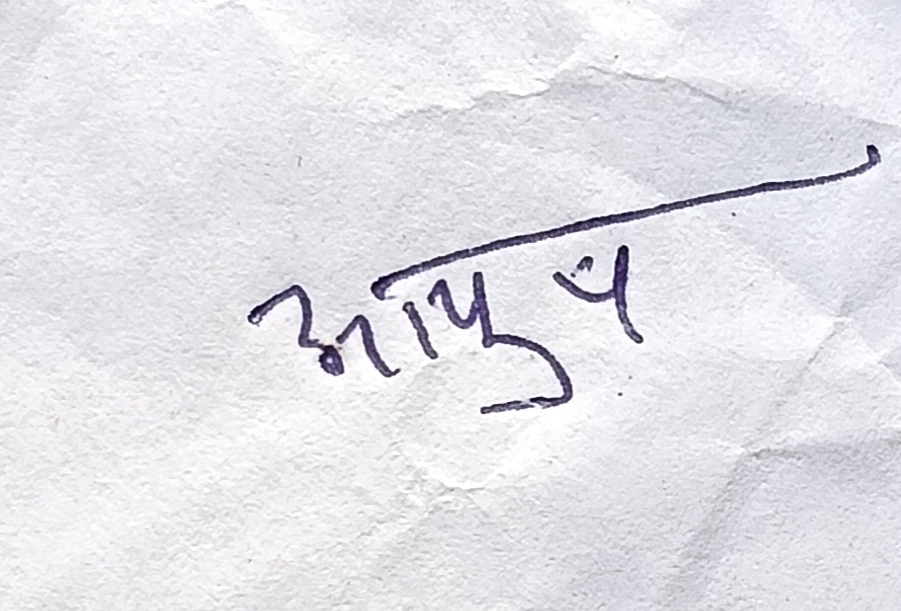 आयुध